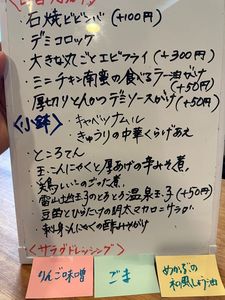 ・石焼ビビンバ(+100円)
・デミコロッケ
・大きな丸ごとエビフライ(+300円)
・ミニチキン南蛮の食べるラー油がけ(+50円)
・厚切りとんかつデミソースがけ(+50円)
<小鉢>
・キャベツナムル
・きゅうりの中華くらげあえ
・ところてん
・玉こんにゃくと厚揚げの辛みそ煮
・雷山地玉子のとろとろ温泉玉子(+50円)
・豆苗と
明太マカロニサラダ
・刺身こんにゃくの酢みそがけ
<サラダドレッシング>
りんご味噌
ごま
めかぶの
和風しょう油